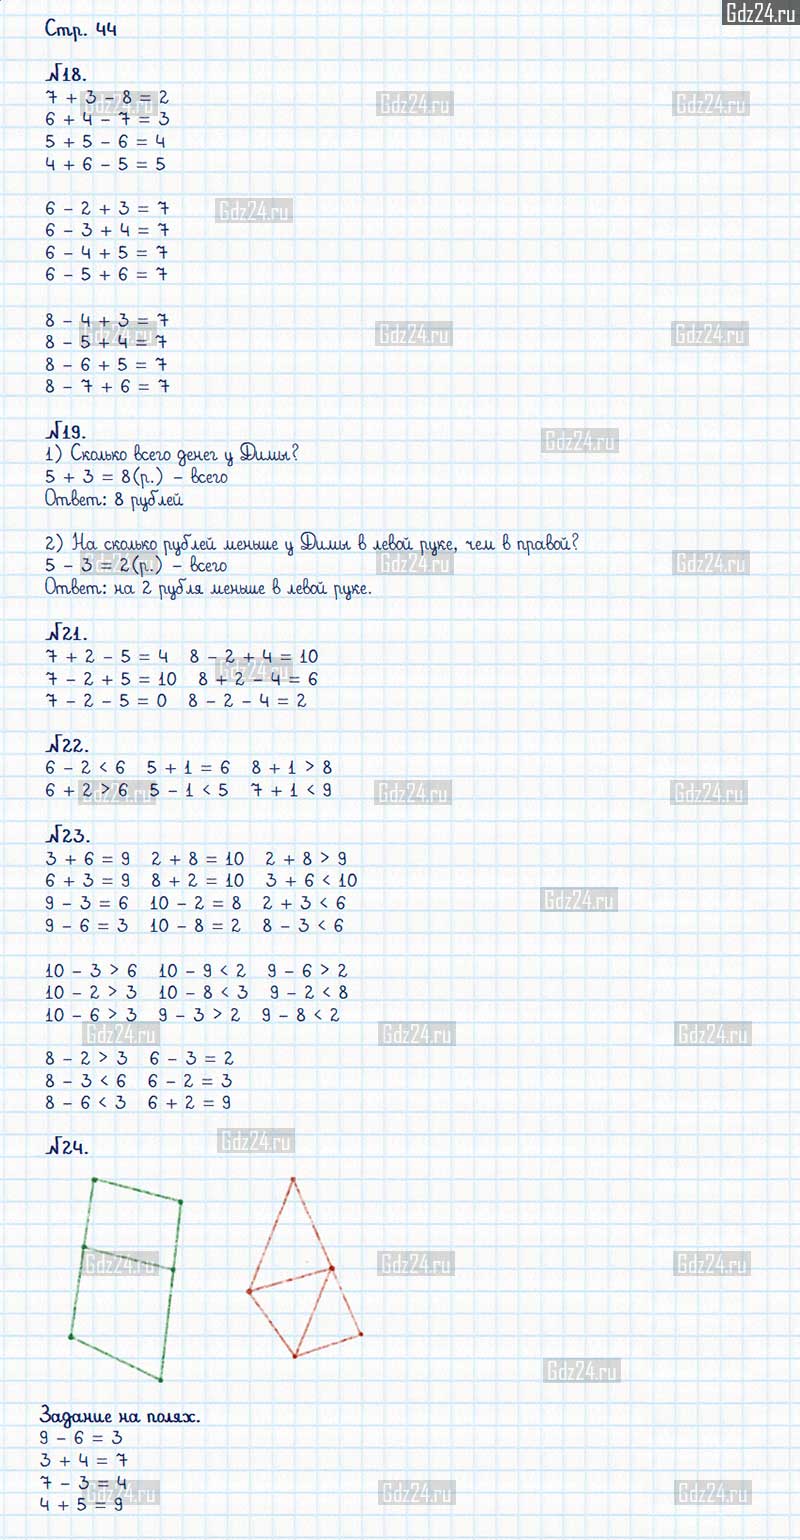 Gdz24.ru
Стр. 44
№18.
7 + 3 - 8 = 2
6 + 4 - 7 = 3
5 + 5 - 6 = 4
4 + 6 - 5 = 5
6 - 2 + 3 = 7
6 - 3 + 4 = 7
6 - 4 + 5 = 7
6 - 5 + 6 = 7
8 - 4 + 3 = 7
8 - 5 + 4 = 7
8 - 6 + 5 = 7
8 - 7 + 6 = 7
№19.
1) Сколько всего денег у Димы?
5 + 3 = 8(р.) - всего
Ответ: 8 рублей
2) На сколько рублей меньше у Димы в левой руке, чем в правой?
5 - 3 = 2(р.) - всего
Ответ: на 2 рубля меньше в левой руке.
№21.
7 + 2 - 5 = 4 8 - 2 + 4 = 10
7 - 2 + 5 = 10 8 + 2 - 4 = 6
7 - 2 - 5 = 0 8 - 2 - 4 = 2
№22.
6 - 2 < 6 5 + 1 = 6 8 + 1 > 8
6 + 2 > 6 5 - 1 < 5 7 + 1 < 9
№23.
3 + 6 = 9 2 + 8 = 10 2 + 8 > 9
6 + 3 = 9 8 + 2 = 10 3 + 6 < 10
9 - 3 = 6 10 - 2 = 8 2 + 3 < 6
9 - 6 = 3 10 - 8 = 2 8 - 3 < 6
10 - 3 > 6 10 - 9 < 2 9 - 6 > 2
10 - 2 > 3 10 - 8 < 3 9 - 2 < 8
10 - 6 > 3 9 - 3 > 2 9 - 8 < 2
8 - 2 > 3 6 - 3 = 2
8 - 3 < 6 6 - 2 = 3
8 - 6 < 3 6 + 2 = 9
№24.
Задание на полях.
9 - 6 = 3
3 + 4 = 7
7 - 3 = 4
4 + 5 = 9